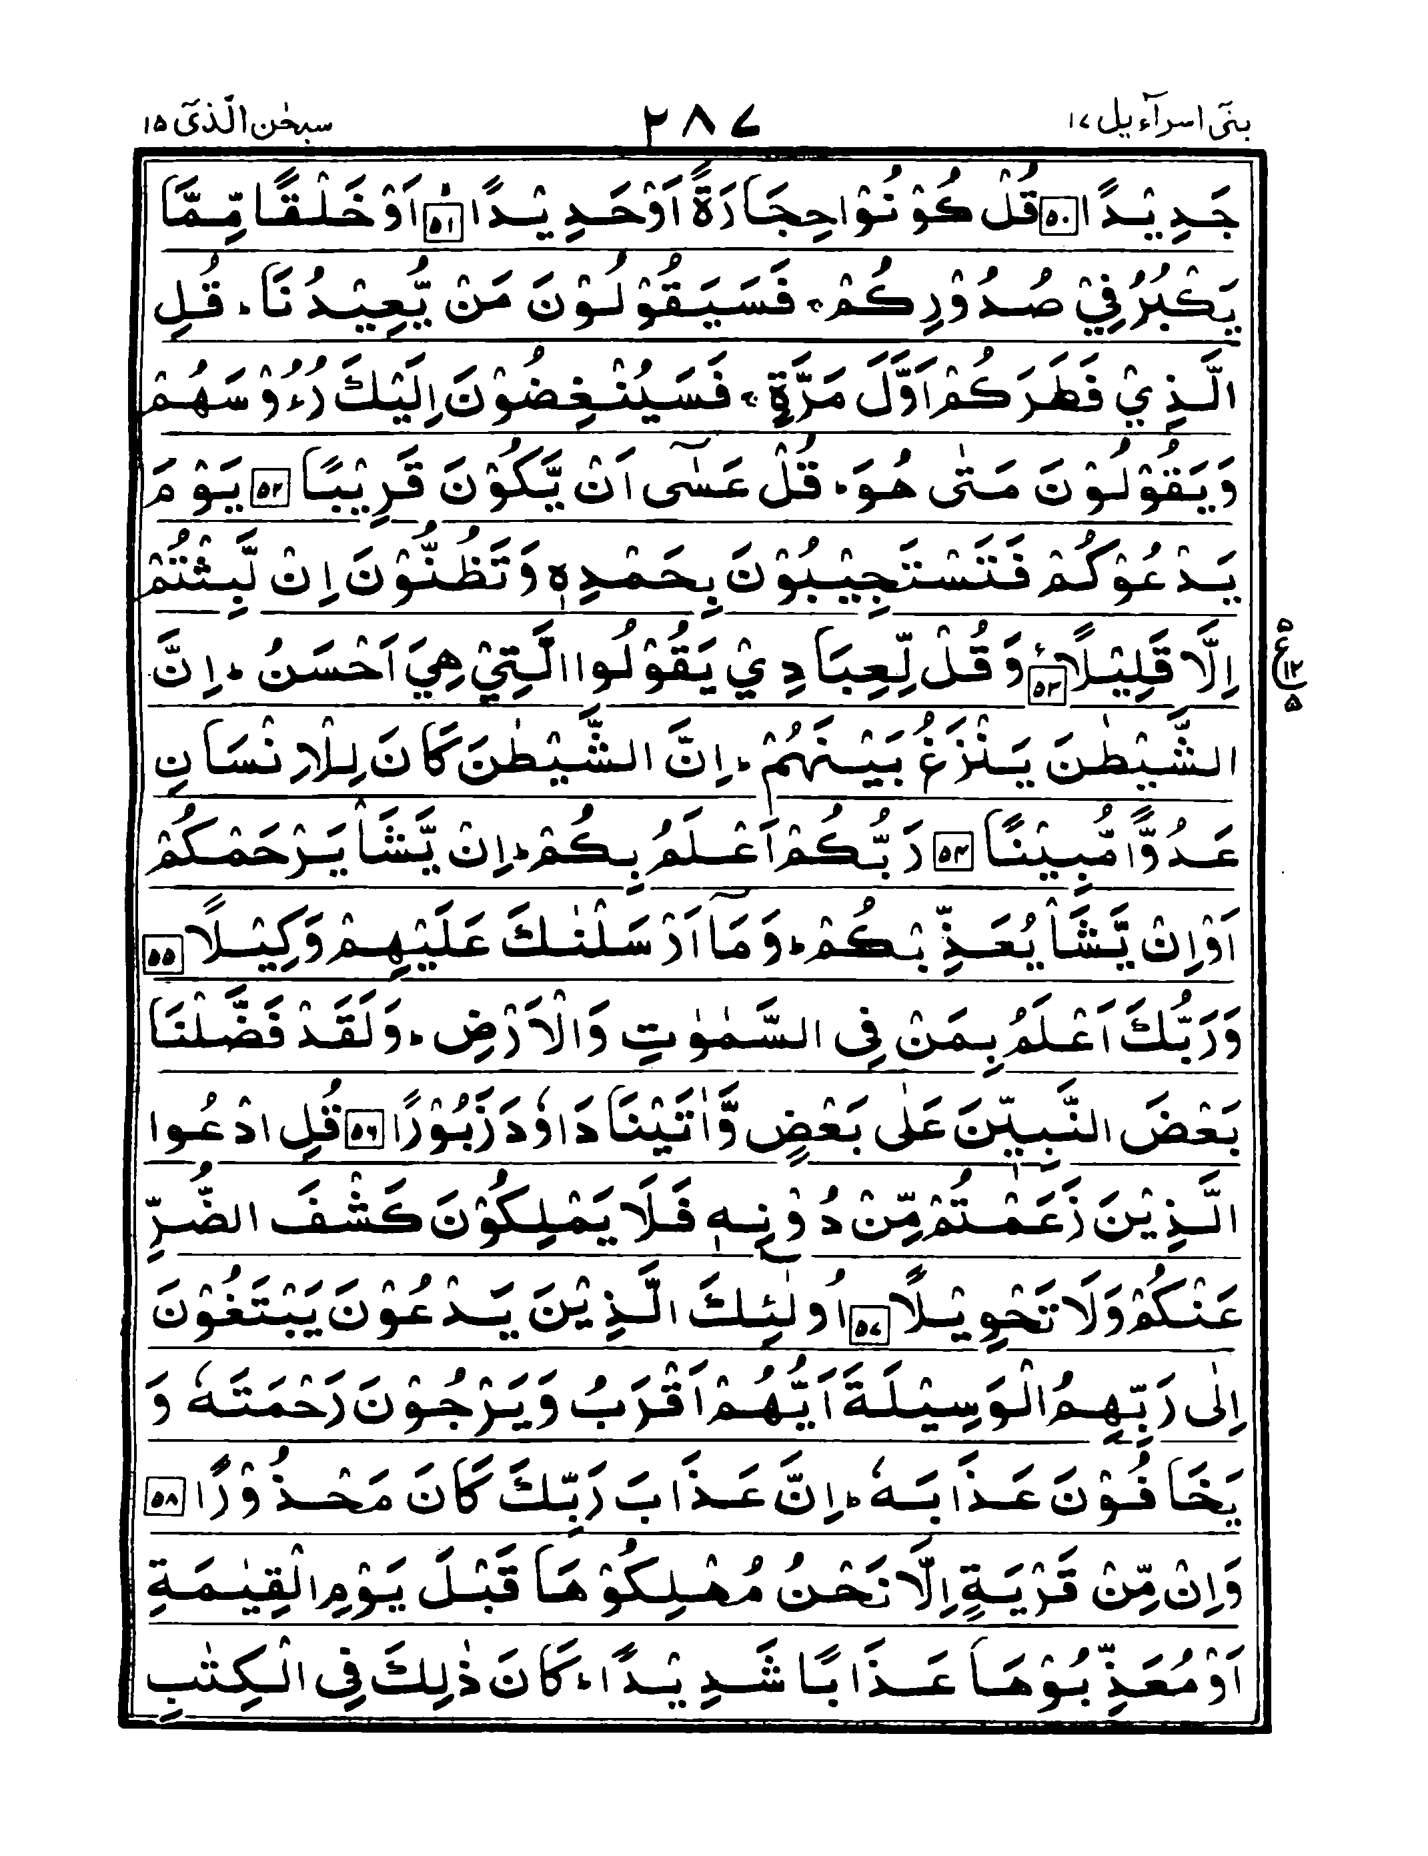 بنیٓ اسرآءیل ۱۷
۲۸۷
سبحٰن الّذیٓ ۱۵
جَدِيْدًا ۵۰ قُلْ كُوْنُوْا حِجَارَةً اَوْ حَدِيْدًا ۵۱ اَوْ خَلْقًا مِّمَّا
يَكْبُرُ فِيْ صُدُوْرِكُمْ ۚ فَسَيَقُوْلُوْنَ مَنْ يُّعِيْدُنَا ؕ قُلِ
الَّذِيْ فَطَرَكُمْ اَوَّلَ مَرَّةٍ ۚ فَسَيُنْغِضُوْنَ اِلَيْكَ رُءُوْسَهُمْ
وَيَقُوْلُوْنَ مَتٰى هُوَ ؕ قُلْ عَسٰٓى اَنْ يَّكُوْنَ قَرِيْبًا ۵۲ يَوْمَ
يَدْعُوْكُمْ فَتَسْتَجِيْبُوْنَ بِحَمْدِهٖ وَتَظُنُّوْنَ اِنْ لَّبِثْتُمْ
اِلَّا قَلِيْلًا ۵۳ وَقُلْ لِّعِبَادِيْ يَقُوْلُوا الَّتِيْ هِيَ اَحْسَنُ ؕ اِنَّ
۵
ع
۱۲
۵
الشَّيْطٰنَ يَنْزَغُ بَيْنَهُمْ ؕ اِنَّ الشَّيْطٰنَ كَانَ لِلْاِنْسَانِ
عَدُوًّا مُّبِيْنًا ۵۴ رَبُّكُمْ اَعْلَمُ بِكُمْ ؕ اِنْ يَّشَاْ يَرْحَمْكُمْ
اَوْ اِنْ يَّشَاْ يُعَذِّبْكُمْ ؕ وَمَآ اَرْسَلْنٰكَ عَلَيْهِمْ وَكِيْلًا ۵۵
وَرَبُّكَ اَعْلَمُ بِمَنْ فِى السَّمٰوٰتِ وَالْاَرْضِ ؕ وَلَقَدْ فَضَّلْنَا
بَعْضَ النَّبِيّٖنَ عَلٰى بَعْضٍ وَّاٰتَيْنَا دَاوٗدَ زَبُوْرًا ۵۶ قُلِ ادْعُوا
الَّذِيْنَ زَعَمْتُمْ مِّنْ دُوْنِهٖ فَلَا يَمْلِكُوْنَ كَشْفَ الضُّرِّ
عَنْكُمْ وَلَا تَحْوِيْلًا ۵۷ اُولٰٓئِكَ الَّذِيْنَ يَدْعُوْنَ يَبْتَغُوْنَ
اِلٰى رَبِّهِمُ الْوَسِيْلَةَ اَيُّهُمْ اَقْرَبُ وَيَرْجُوْنَ رَحْمَتَهٗ وَ
يَخَافُوْنَ عَذَابَهٗ ؕ اِنَّ عَذَابَ رَبِّكَ كَانَ مَحْذُوْرًا ۵۸
وَاِنْ مِّنْ قَرْيَةٍ اِلَّا نَحْنُ مُهْلِكُوْهَا قَبْلَ يَوْمِ الْقِيٰمَةِ
اَوْ مُعَذِّبُوْهَا عَذَابًا شَدِيْدًا ؕ كَانَ ذٰلِكَ فِى الْكِتٰبِ